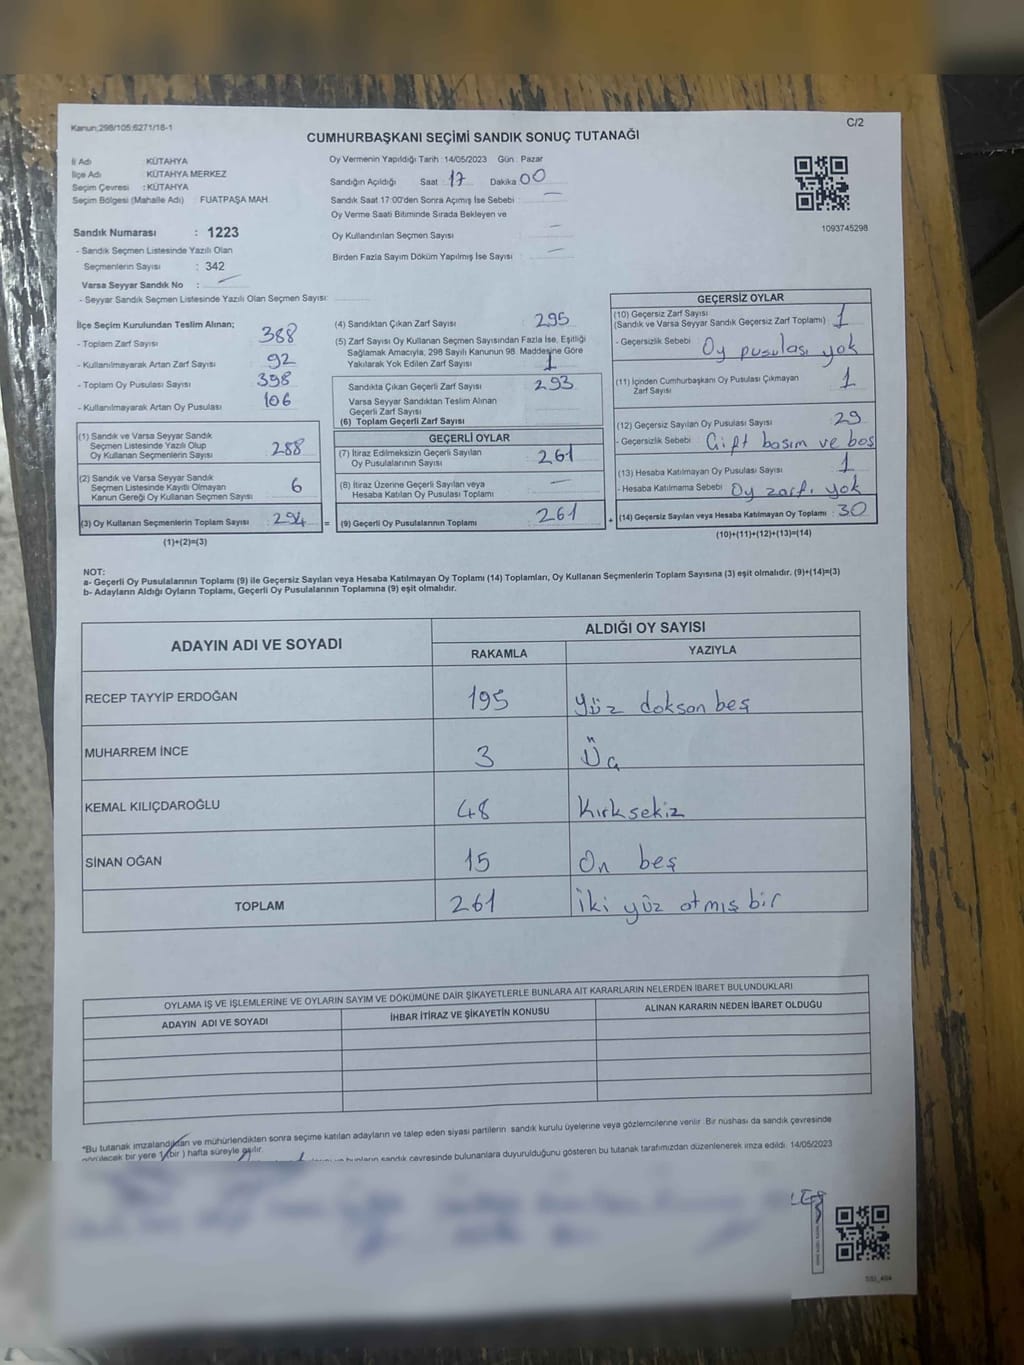 Kanun;298/105;6271/18-1
C/2
CUMHURBAŞKANI SEÇİMİ SANDIK SONUÇ TUTANAĞI
İl Adı : KÜTAHYA
İlçe Adı : KÜTAHYA MERKEZ
Seçim Çevresi : KÜTAHYA
Seçim Bölgesi (Mahalle Adı) FUATPAŞA MAH.
Sandık Numarası : 1223
- Sandık Seçmen Listesinde Yazılı Olan
Seçmenlerin Sayısı : 342
Varsa Seyyar Sandık No : —
- Seyyar Sandık Seçmen Listesinde Yazılı Olan Seçmen Sayısı:
Oy Vermenin Yapıldığı Tarih : 14/05/2023 Gün : Pazar
Sandığın Açıldığı Saat : 17 Dakika 00
Sandık Saat 17:00'den Sonra Açımış İse Sebebi : —
Oy Verme Saati Bitiminde Sırada Bekleyen ve
Oy Kullandırılan Seçmen Sayısı —
Birden Fazla Sayım Döküm Yapılmış İse Sayısı : —
1093745298
İlçe Seçim Kurulundan Teslim Alınan;
- Toplam Zarf Sayısı : 388
- Kullanılmayarak Artan Zarf Sayısı : 92
- Toplam Oy Pusulası Sayısı : 398
- Kullanılmayarak Artan Oy Pusulası : 106
(1) Sandık ve Varsa Seyyar Sandık
Seçmen Listesinde Yazılı Olup
Oy Kullanan Seçmenlerin Sayısı : 288
(2) Sandık ve Varsa Seyyar Sandık
Seçmen Listesinde Kayıtlı Olmayan
Kanun Gereği Oy Kullanan Seçmen Sayısı : 6
(3) Oy Kullanan Seçmenlerin Toplam Sayısı : 294 =
(1)+(2)=(3)
(4) Sandıktan Çıkan Zarf Sayısı : 295
(5) Zarf Sayısı Oy Kullanan Seçmen Sayısından Fazla İse, Eşitliği
Sağlamak Amacıyla, 298 Sayılı Kanunun 98. Maddesine Göre
Yakılarak Yok Edilen Zarf Sayısı : 1
Sandıkta Çıkan Geçerli Zarf Sayısı : 293
Varsa Seyyar Sandıktan Teslim Alınan
Geçerli Zarf Sayısı
(6) Toplam Geçerli Zarf Sayısı :
GEÇERLİ OYLAR
(7) İtiraz Edilmeksizin Geçerli Sayılan
Oy Pusulalarının Sayısı : 261
(8) İtiraz Üzerine Geçerli Sayılan veya
Hesaba Katılan Oy Pusulası Toplamı : —
(9) Geçerli Oy Pusulalarının Toplamı : 261 +
GEÇERSİZ OYLAR
(10) Geçersiz Zarf Sayısı
(Sandık ve Varsa Seyyar Sandık Geçersiz Zarf Toplamı) : 1
- Geçersizlik Sebebi : Oy pusulası yok
(11) İçinden Cumhurbaşkanı Oy Pusulası Çıkmayan
Zarf Sayısı : 1
(12) Geçersiz Sayılan Oy Pusulası Sayısı : 29
- Geçersizlik Sebebi : Çift basım ve boş
(13) Hesaba Katılmayan Oy Pusulası Sayısı : 1
- Hesaba Katılmama Sebebi : Oy zarfı yok
(14) Geçersiz Sayılan veya Hesaba Katılmayan Oy Toplamı : 30
(10)+(11)+(12)+(13)=(14)
NOT:
a- Geçerli Oy Pusulalarının Toplamı (9) ile Geçersiz Sayılan veya Hesaba Katılmayan Oy Toplamı (14) Toplamları, Oy Kullanan Seçmenlerin Toplam Sayısına (3) eşit olmalıdır. (9)+(14)=(3)
b- Adayların Aldığı Oyların Toplamı, Geçerli Oy Pusulalarının Toplamına (9) eşit olmalıdır.
ADAYIN ADI VE SOYADI
ALDIĞI OY SAYISI
RAKAMLA YAZIYLA
RECEP TAYYİP ERDOĞAN 195 Yüz doksan beş
MUHARREM İNCE 3 Üç
KEMAL KILIÇDAROĞLU 48 Kırksekiz
SİNAN OĞAN 15 On beş
TOPLAM 261 İki yüz atmış bir
OYLAMA İŞ VE İŞLEMLERİNE VE OYLARIN SAYIM VE DÖKÜMÜNE DAİR ŞİKAYETLERLE BUNLARA AİT KARARLARIN NELERDEN İBARET BULUNDUKLARI
ADAYIN ADI VE SOYADI İHBAR İTİRAZ VE ŞİKAYETİN KONUSU ALINAN KARARIN NEDEN İBARET OLDUĞU
*Bu tutanak imzalandıktan ve mühürlendikten sonra seçime katılan adayların ve talep eden siyasi partilerin sandık kurulu üyelerine veya gözlemcilerine verilir. Bir nüshası da sandık çevresinde
görülecek bir yere 1 (bir) hafta süreyle asılır.
bunların sandık çevresinde bulunanlara duyurulduğunu gösteren bu tutanak tarafımızdan düzenlenerek imza edildi. 14/05/2023